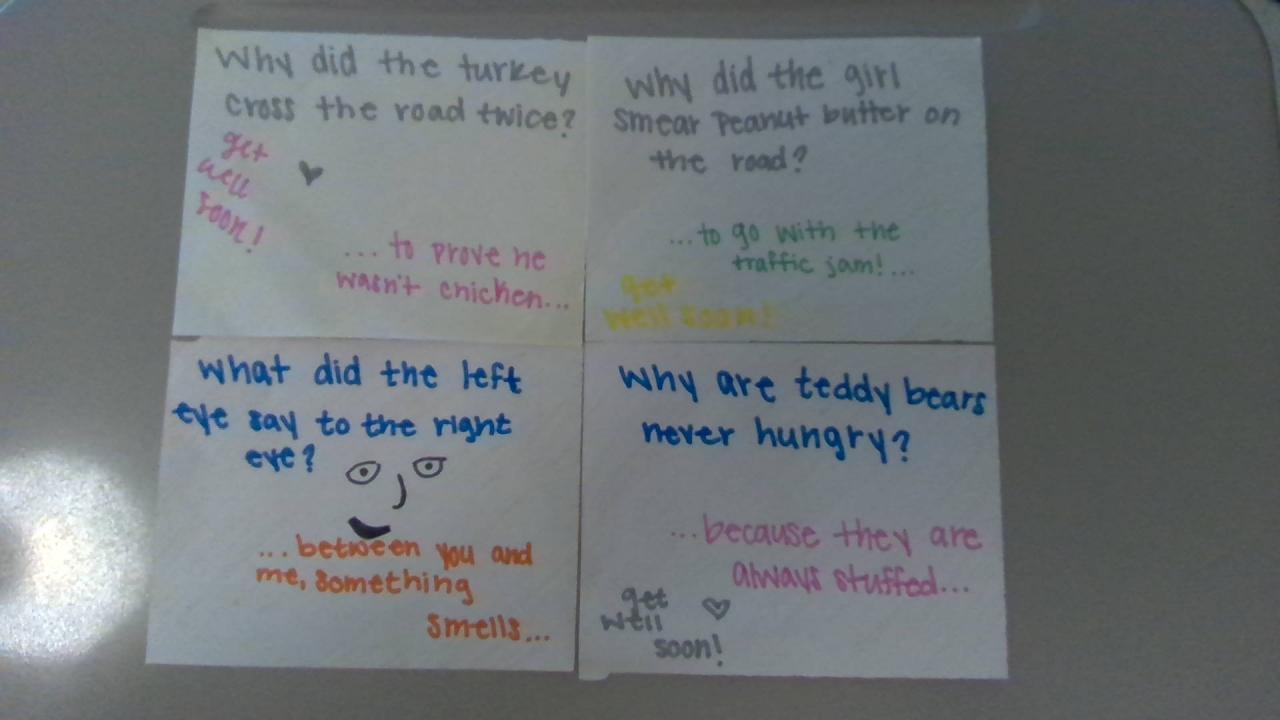 Why did the turkey
cross the road twice?
get
well
soon!
...to prove he
wasn't chicken...
Why did the girl
smear Peanut butter on
the road?
...to go with the
traffic jam!...
get
well soon!
what did the left
eye say to the right
eye?
...between you and
me, something
smells...
Why are teddy bears
never hungry?
...because they are
always stuffed...
get
well
soon!